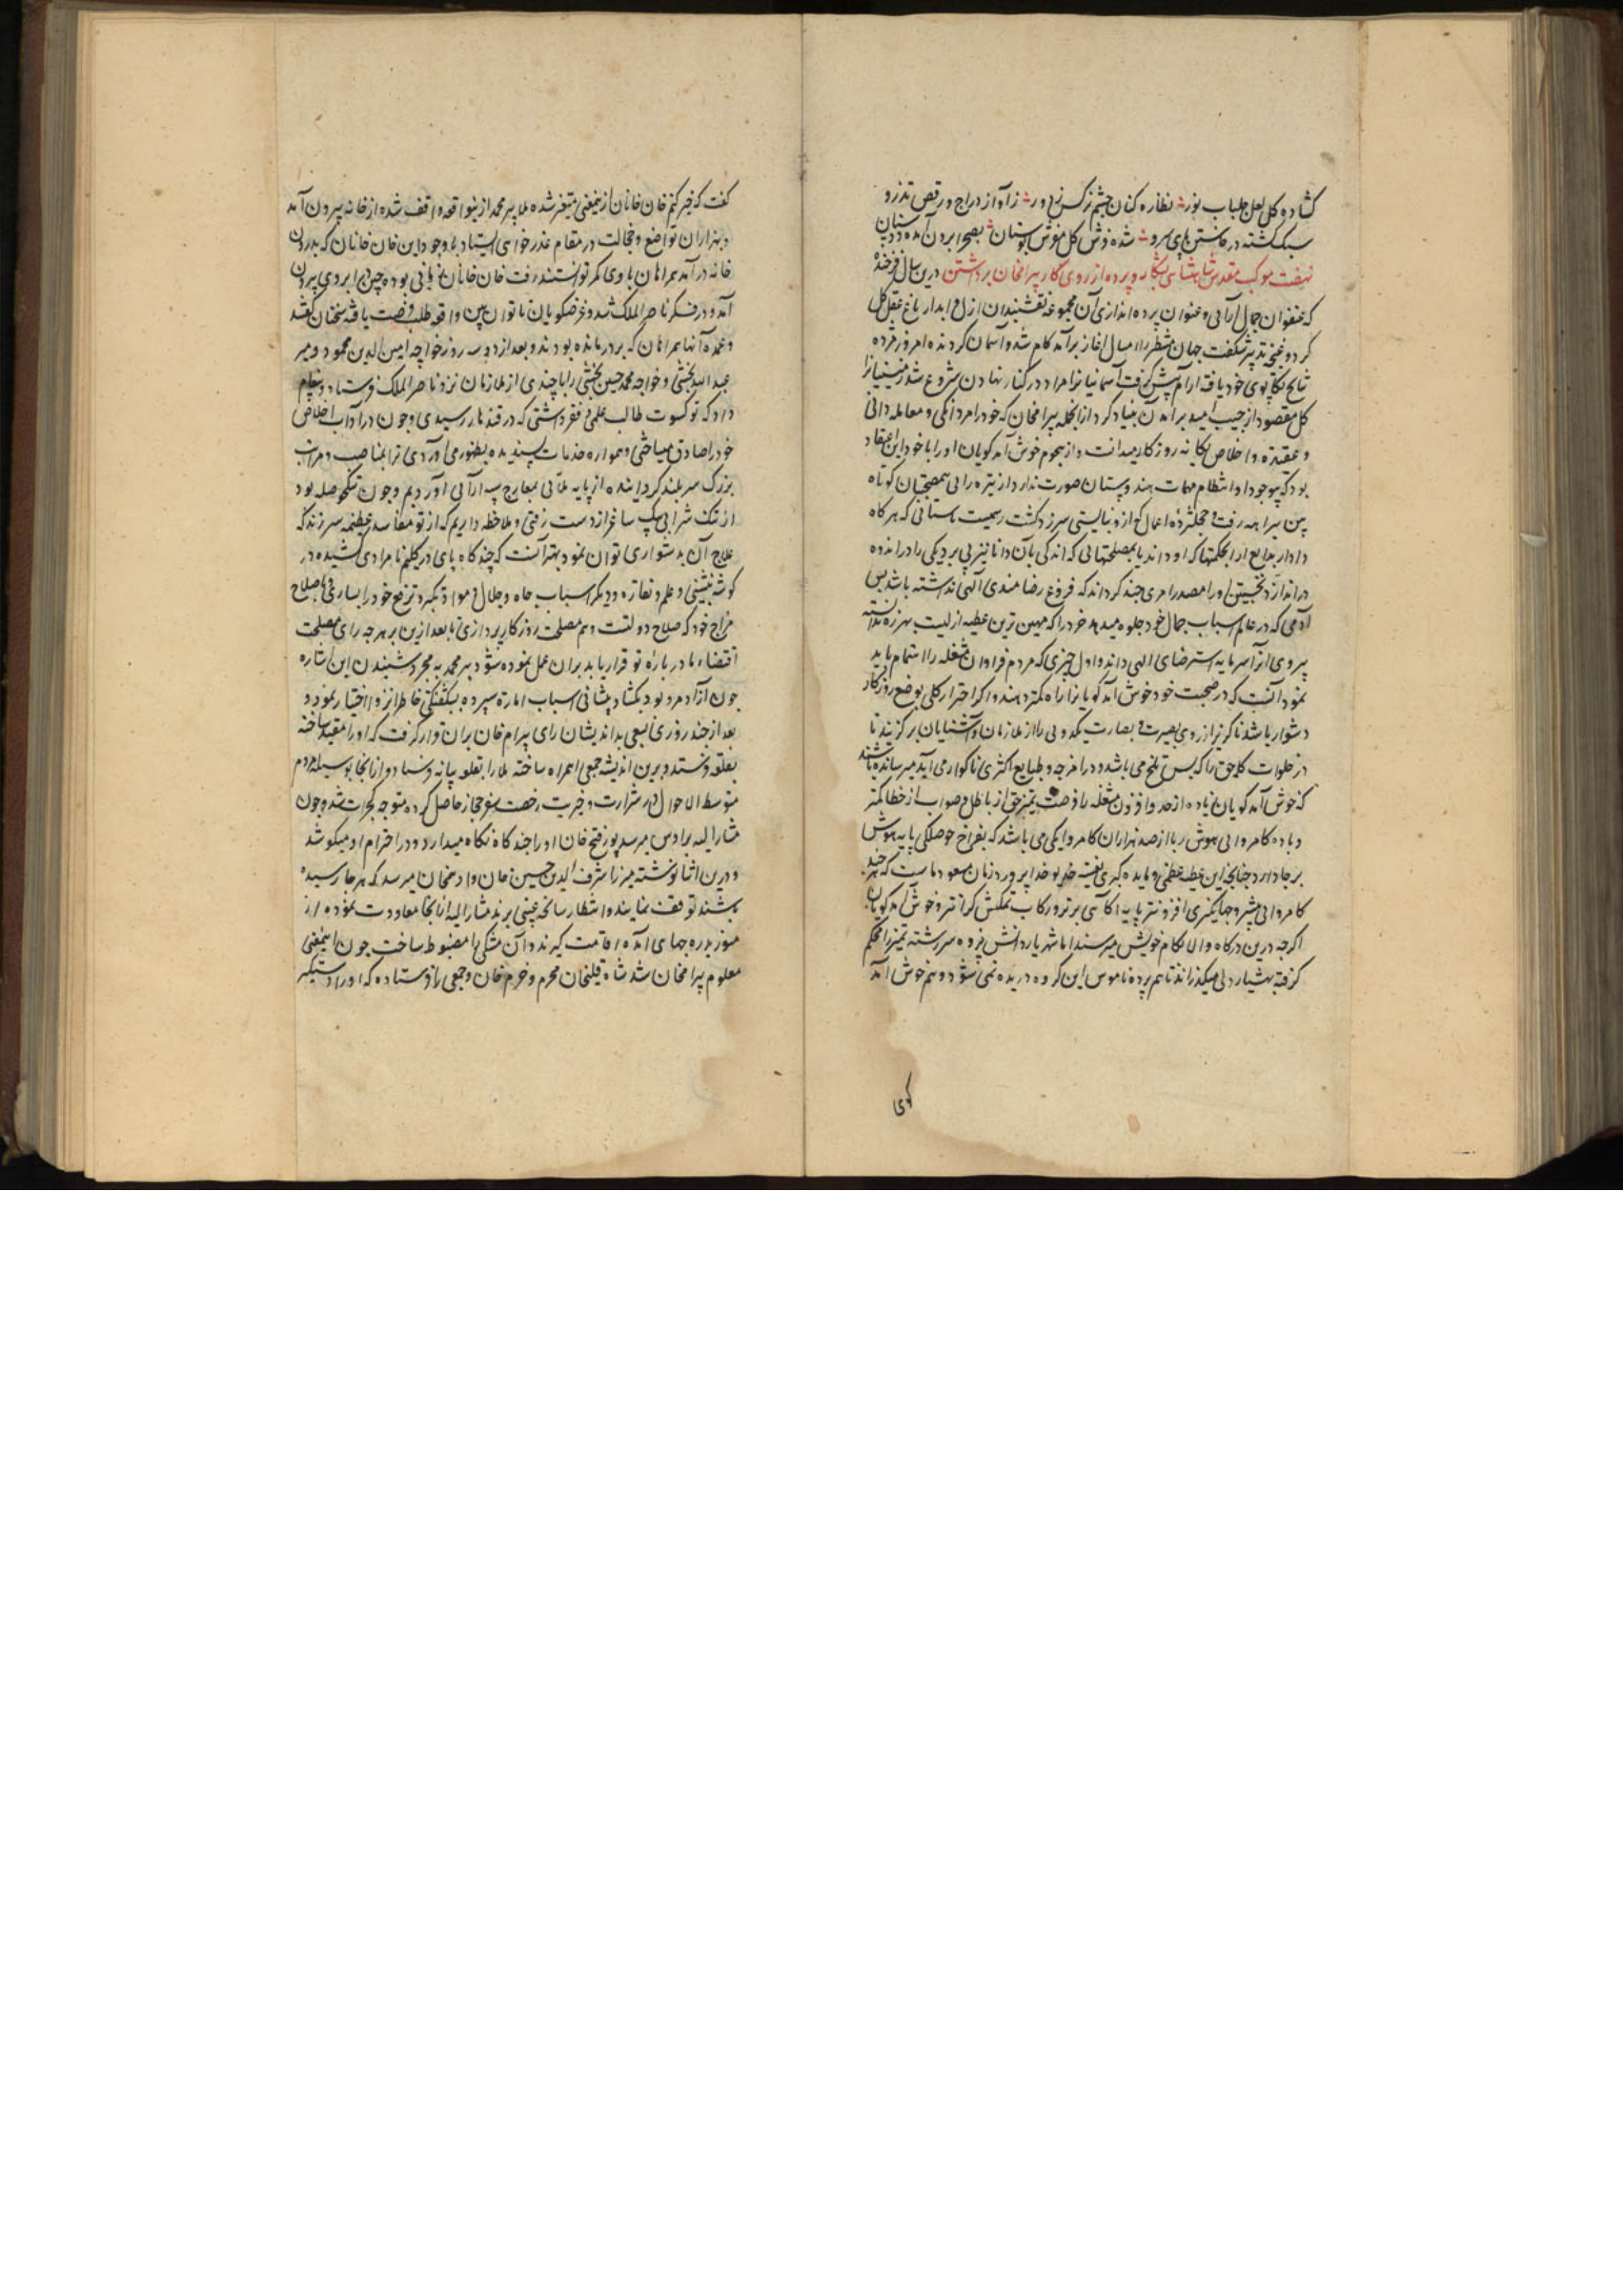 کشاده کل لعل جلباب نور نظاره کنان چشم نرکس ز دور ز آواز دراج و رقص تذرو
سبک کشته در خاستن پای سرو شده فرش کل مفرش بوستان بصحرا برون آمده دوستان
نهضت موکب مقدس شاهنشاهی بشکار و پرده از روی کار بیرامخان برداشتن درین سال فرخنده
که عنفوان جمال آرائی و عنوان پرده اندازی آن مجموعه نقشبندان ازل و ابدار باغ عقل کل
کرد و غنچه تدبیر شکفت جهان منتظر را سال اغاز برآمد کام شد و آسمان کردنده امروز مزده
نتایج تکاپوی خود یافته آرام پیش کرفت آسمانیانرا مراد در کنار نهادن شروع شد زمینیانرا
کل مقصود از جیب امید برآمدن بنیاد کرد ازانجمله بیرامخان که خود را مردانکی و معامله دانی
و عقیده و اخلاص یکانه روزکار میدانست و از هجوم خوش آمد کویان او را با خود این اعتقاد
بود که بیوجود او انتظام مهمات هندوستان صورت ندارد از تیره رائی همصحبتان کوتاه
بین بیراهه رفت و مجلش زده اعمالی که ازو نبایستی سرزد کشت
دادار بدایع ابداع بحکمتها که او داند یا بمصلحتهائی که اندکی بآن دانا نیز پی برد یکی را درانده
در اندازد نخستین او را مصدر امری چند کرداند که فروغ رضامندی الهی نداشته باشد پس
آدمی که در عالم اسباب جمال خود جلوه میدهد خرد را که مهین ترین عطیه ازلیست بهرزه ندانسته
پیروی آنرا سرمایه استرضای الهی داند و اول چیزی که مردم فراوان مشغله را اهتمام باید
نمود آنست که در صحبت خود خوش آمد کویانرا راه کمتر دهند و اکر احتراز کلی بوضع روزکار
دشوار باشد ناکزیر از روی بصیرت و بصارت یکدوئی را از ملازمان و آشنایان برکزیند تا
در خلوات کلمه حق را که بس تلخ می باشد و در امزجه و طبایع اکثری ناکوار می آید میرسانیده باشند
که خوش آمد کویان زیاده از حد و افزون مشغله را فرصت تمیز حق از باطل و صواب از خطا کمتر
و باده کامروائی هوش ربا از صد هزاران کامروا یکی می باشد که بفراخ حوصلکی پایه هوش
بر جا دارد چنانچه این عطیه عظمی و مایده کبری نصیبه خدیو خدا پرورد زمان مسعود ماست که هرچند
کامروائی بیشتر و جهانکیری افزونتر پایه آکاهی برتر و رکاب تمکین کرانتر و خوش آمد کویان
اکرچه درین درکاه والا بکام خویش میرسند اما شهریار دانش پژوه سررشته تمیز را محکم
کرفته بهشیار دلی میکذراند تا هم پرده ناموس این کروه دریده نمی شود و هم خوش آمد
کوی
کفت که خبر کنم خان خانان ازینمعنی متغیر شده ملا پیر محمد ازینواقعه واقف شده از خانه بیرون آمد
و بهزاران تواضع و خجالت در مقام عذر خواهی ایستاد باوجود این خان خانان که بدرون
خانه درآمد همراهان با وی کمتر توانستند رفت خان خانان زمانی بوده چین بر ابروی بیرون
آمد و در فکر ناصر الملک شد و غرضکویان ناتوان بین واقعه طلب فرصت یافته سخنان کفتند
و عمده آنها همراهان که بر در مانده بودند و بعد از دو سه روز خواجه امین الدین محمود و میر
عبد الله بخشی و خواجه محمد حسین بخشی را با چندی از ملازمان نزد ناصر الملک فرستاد و پیغام
داد که تو کسوت طالب علمی و فقر داشتی که در قندهار رسیدی و چون در آداب اخلاص
خود را صادق میساختی و همواره خدمات پسندیده بظهور می آوردی ترا بمناصب و مراتب
بزرک سربلند کردانیده از پایه ملائی بمعارج سپه آرائی آوردیم و چون تنک حوصله بود
از تنک شرابی یک ساغر از دست رفتی و ملاحظه داریم که از تو مفاسد عظیمه سرزند که
علاج آن بدشواری توان نمود بهتر آنست که چند کاه پای در کلیم نامرادی کشیده در
کوشه نشینی و علم و نقاره و دیکر اسباب جاه و جلال و مواد تکبر و ترفع خود را بسپاری باصلاح
مزاج خود که صلاح دولتت و هم مصلحت روزکار پردازی تا بعد ازین بر هرچه رای مصلحت
اقتضاء ما در باره تو قرار یابد بران عمل نموده شود پیر محمد به مجرد شنیدن این اشاره
چون آزاد مرد بود بکشاد پیشانی اسباب امارة سپرده بشکفتکی خاطر انزوا اختیار نمود و
بعد از چند روزی بسعی بداندیشان رای بیرام خان بران قرار کرفت که او را مقید ساخته
بقلعه فرستند و برین اندیشه جمعی همراه ساخته ملا را بقلعه بیانه فرستاد و ازانجا بوسیله مردم
متوسط الاحوال در شرارت و خیریت رخصت سفر حجاز حاصل کرده متوجه کجرات شد و چون
مشار الیه برادس میرسد پور فتح خان او را چند کاه نکاه میدارد و در احترام او میکوشد
و درین اثنا نوشته میرزا شرف الدین حسین خان و ادهمخان میرسد که هر جا رسیده
باشند توقف نمایند و انتظار سانحه غیبی برند مشار الیه ازانجا معاودت نموده از
موز بدره جهای آمده اقامت کیرند و آن متنکی را مضبوط ساخت چون اینمعنی
معلوم بیرامخان شد شاه قلیخان محرم و خرم خان و جمعی را فرستاده که او را دستکیر